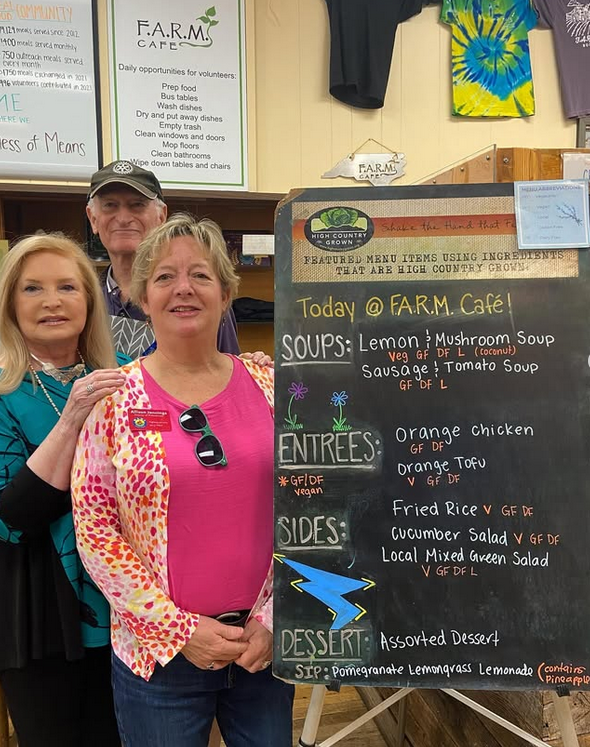 COMMUNITY
meals served since 2012
1400 meals served monthly
750 outreach meals served
every month
1750 meals exchanged in 2021
volunteers contributed in 2021
ME
HERE WE
ness of Means
F.A.R.M.
CAFE
Daily opportunities for volunteers:
Prep food
Bus tables
Wash dishes
Dry and put away dishes
Empty trash
Clean windows and doors
Mop floors
Clean bathrooms
Wipe down tables and chairs
F.A.R.M.
CAFE
HIGH COUNTRY
GROWN
Shake the Hand that F
FEATURED MENU ITEMS USING INGREDIENTS
THAT ARE HIGH COUNTRY GROWN
Today @ F.A.R.M. Café!
SOUPS: Lemon & Mushroom Soup
Veg GF DF L (coconut)
Sausage & Tomato Soup
GF DF L
ENTREES: Orange chicken
GF DF
Orange Tofu
V GF DF
*GF/DF
vegan
Fried Rice V GF DF
SIDES: Cucumber Salad V GF DF
Local Mixed Green Salad
V GF DF L
DESSERT: Assorted Dessert
SIP: Pomegranate Lemongrass Lemonade (contains
Pineapple
Allison Jennings